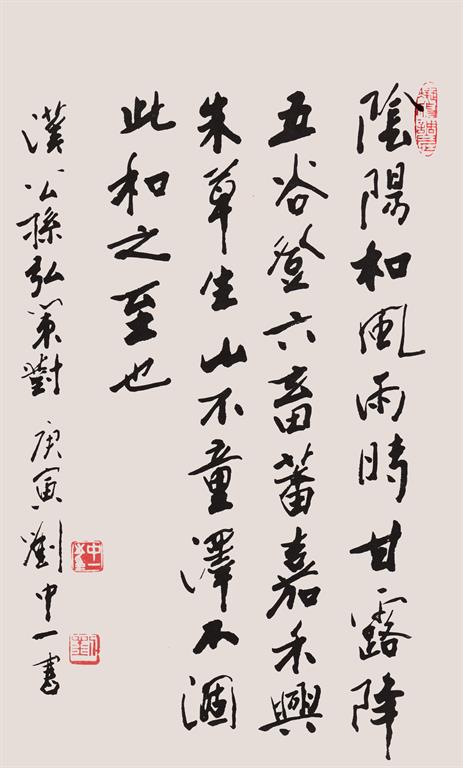 陰陽和風雨時甘露降
五谷登六畜蕃嘉禾興
朱草生山不童澤不涸
此和之至也
漢公孫弘策對 庚寅劉中一書
中一